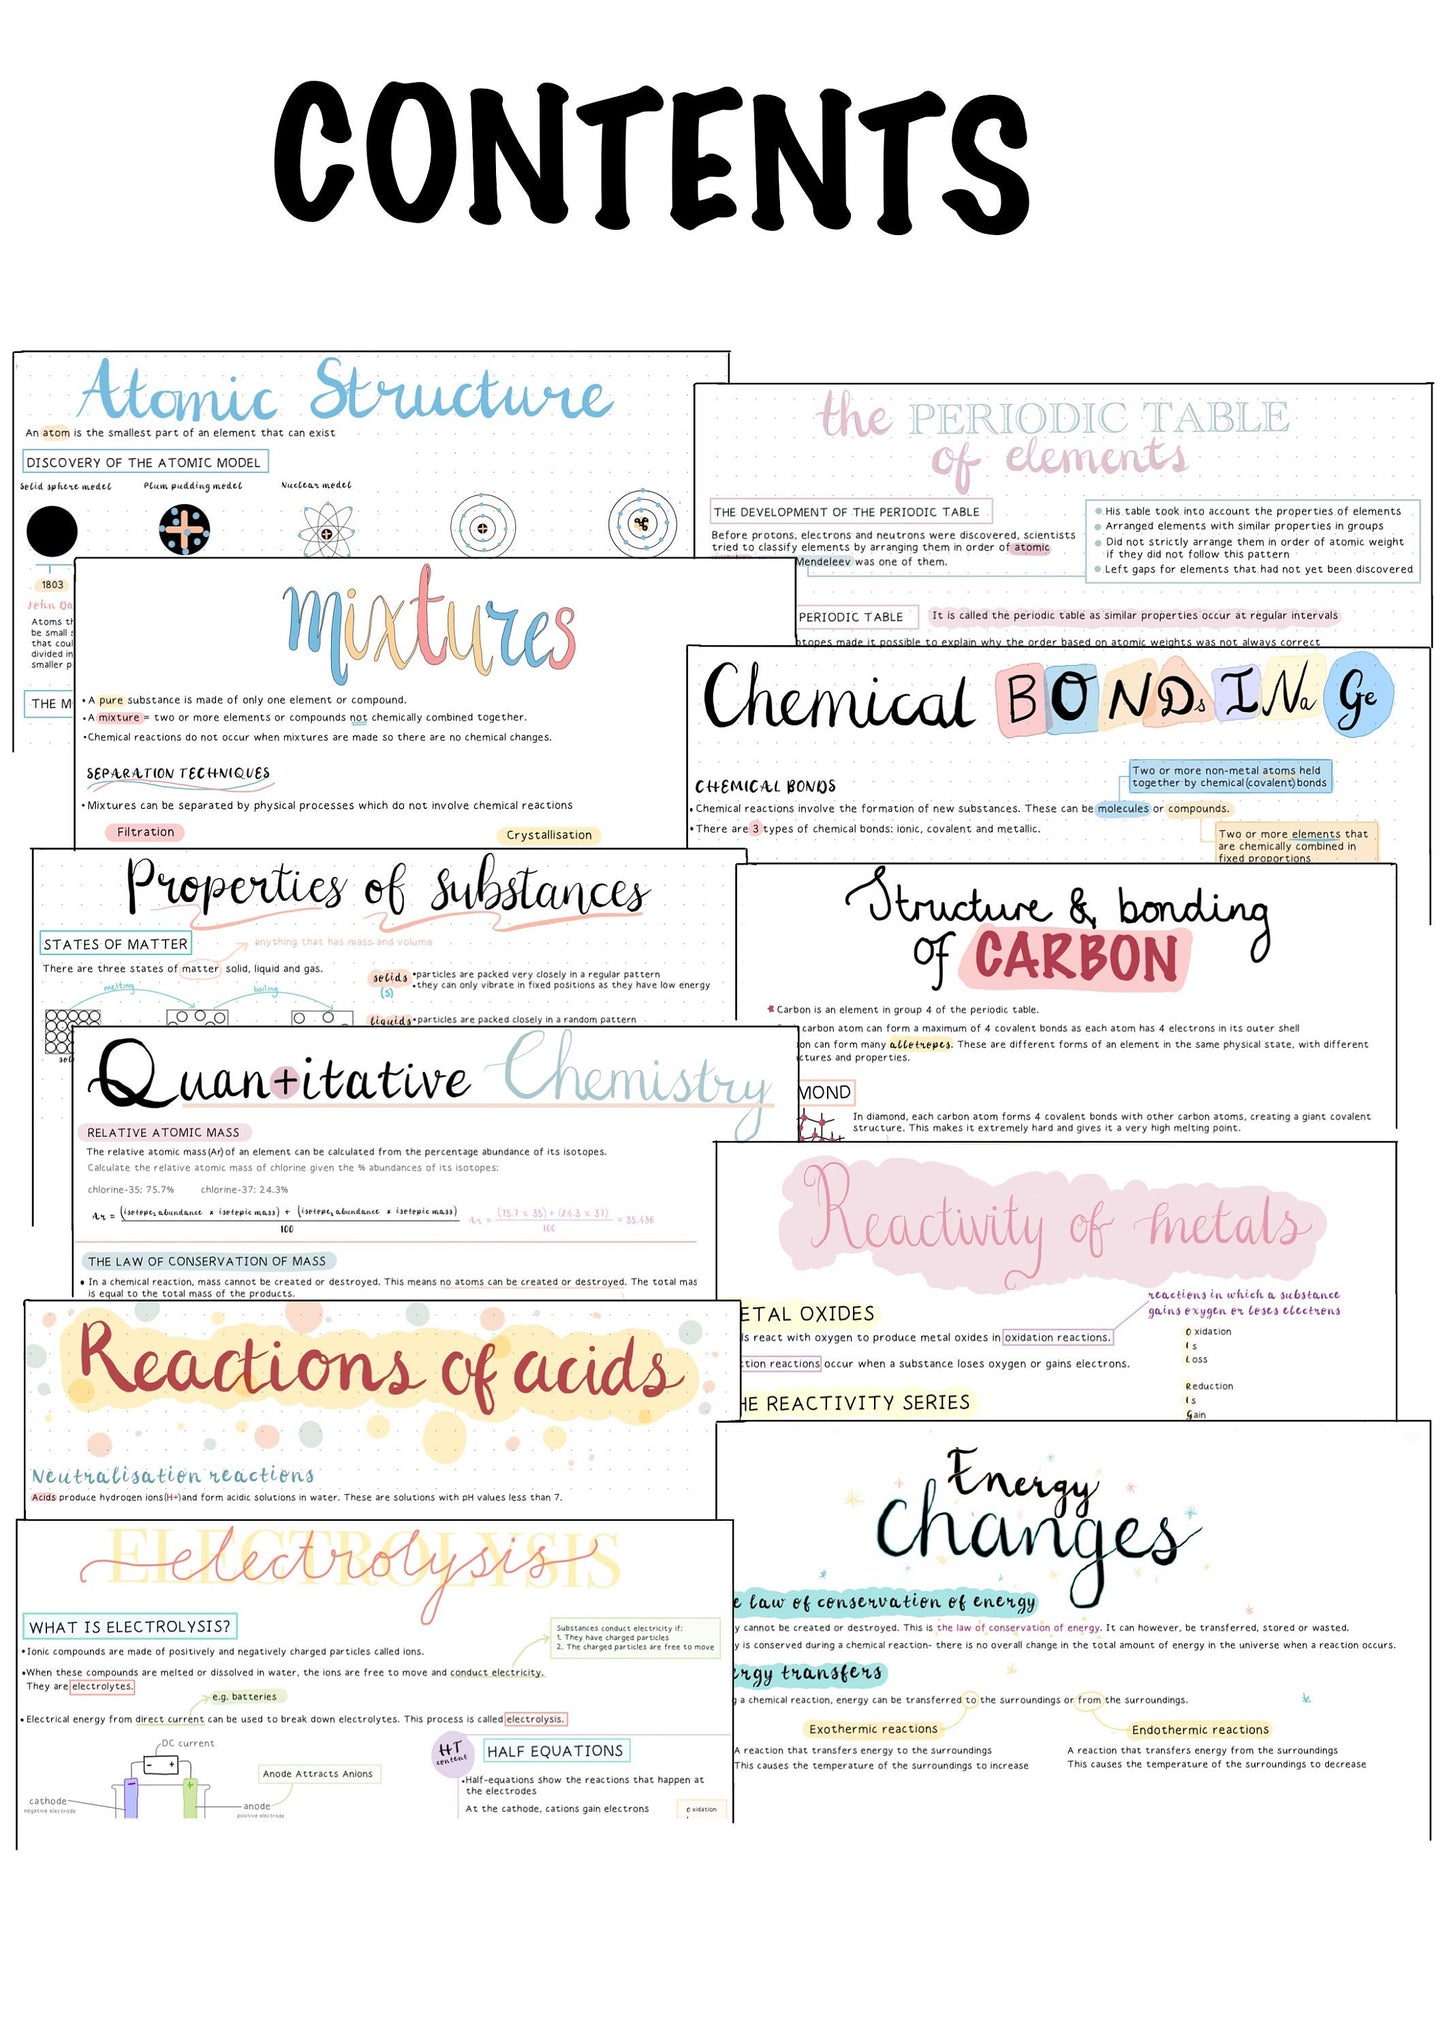 CONTENTS
Atomic Structure
An atom is the smallest part of an element that can exist
DISCOVERY OF THE ATOMIC MODEL
Solid sphere model
Plum pudding model
Nuclear model
1803
John Da
Atoms th
be small s
that coul
divided in
smaller p
THE M
the PERIODIC TABLE
of elements
THE DEVELOPMENT OF THE PERIODIC TABLE
Before protons, electrons and neutrons were discovered, scientists
tried to classify elements by arranging them in order of atomic
Mendeleev was one of them.
His table took into account the properties of elements
Arranged elements with similar properties in groups
Did not strictly arrange them in order of atomic weight
if they did not follow this pattern
Left gaps for elements that had not yet been discovered
PERIODIC TABLE
It is called the periodic table as similar properties occur at regular intervals
topes made it possible to explain why the order based on atomic weights was not always correct
mixtures
• A pure substance is made of only one element or compound.
• A mixture = two or more elements or compounds not chemically combined together.
• Chemical reactions do not occur when mixtures are made so there are no chemical changes.
SEPARATION TECHNIQUES
• Mixtures can be separated by physical processes which do not involve chemical reactions
Filtration
Crystallisation
Chemical BONDsINaGe
CHEMICAL BONDS
• Chemical reactions involve the formation of new substances. These can be molecules or compounds.
• There are 3 types of chemical bonds: ionic, covalent and metallic.
Two or more non-metal atoms held
together by chemical (covalent) bonds
Two or more elements that
are chemically combined in
fixed proportions
Properties of substances
STATES OF MATTER
anything that has mass and volume
There are three states of matter solid, liquid and gas.
melting
boiling
sol
solids
(s)
• particles are packed very closely in a regular pattern
• they can only vibrate in fixed positions as they have low energy
liquids • particles are packed closely in a random pattern
Structure & bonding
of CARBON
Carbon is an element in group 4 of the periodic table.
carbon atom can form a maximum of 4 covalent bonds as each atom has 4 electrons in its outer shell
on can form many allotropes. These are different forms of an element in the same physical state, with different
ctures and properties.
MOND
In diamond, each carbon atom forms 4 covalent bonds with other carbon atoms, creating a giant covalent
structure. This makes it extremely hard and gives it a very high melting point.
Quan+itative Chemistry
RELATIVE ATOMIC MASS
The relative atomic mass (Ar) of an element can be calculated from the percentage abundance of its isotopes.
Calculate the relative atomic mass of chlorine given the % abundances of its isotopes:
chlorine-35: 75.7% chlorine-37: 24.3%
Ar = (isotope₁ abundance x isotopic mass) + (isotope₂ abundance x isotopic mass)
100
Ar = (75.7 x 35) + (24.3 x 37) = 35.486
100
THE LAW OF CONSERVATION OF MASS
• In a chemical reaction, mass cannot be created or destroyed. This means no atoms can be created or destroyed. The total mas
is equal to the total mass of the products.
Reactivity of metals
ETAL OXIDES
ls react with oxygen to produce metal oxides in oxidation reactions.
reactions in which a substance
gains oxygen or loses electrons
ction reactions occur when a substance loses oxygen or gains electrons.
HE REACTIVITY SERIES
Oxidation
Is
Loss
Reduction
Is
Gain
Reactions of acids
Neutralisation reactions
Acids produce hydrogen ions (H+) and form acidic solutions in water. These are solutions with pH values less than 7.
Energy
changes
e law of conservation of energy
y cannot be created or destroyed. This is the law of conservation of energy. It can however, be transferred, stored or wasted.
y is conserved during a chemical reaction- there is no overall change in the total amount of energy in the universe when a reaction occurs.
ergy transfers
g a chemical reaction, energy can be transferred to the surroundings or from the surroundings.
Exothermic reactions
Endothermic reactions
A reaction that transfers energy to the surroundings
This causes the temperature of the surroundings to increase
A reaction that transfers energy from the surroundings
This causes the temperature of the surroundings to decrease
ELECTROLYSIS
electrolysis
WHAT IS ELECTROLYSIS?
• Ionic compounds are made of positively and negatively charged particles called ions.
Substances conduct electricity if:
1. They have charged particles
2. The charged particles are free to move
• When these compounds are melted or dissolved in water, the ions are free to move and conduct electricity.
They are electrolytes.
e.g. batteries
• Electrical energy from direct current can be used to break down electrolytes. This process is called electrolysis.
DC current
- +
Anode Attracts Anions
cathode
negative electrode
- +
anode
positive electrode
HT
content
HALF EQUATIONS
• Half-equations show the reactions that happen at
the electrodes
At the cathode, cations gain electrons
Oxidation